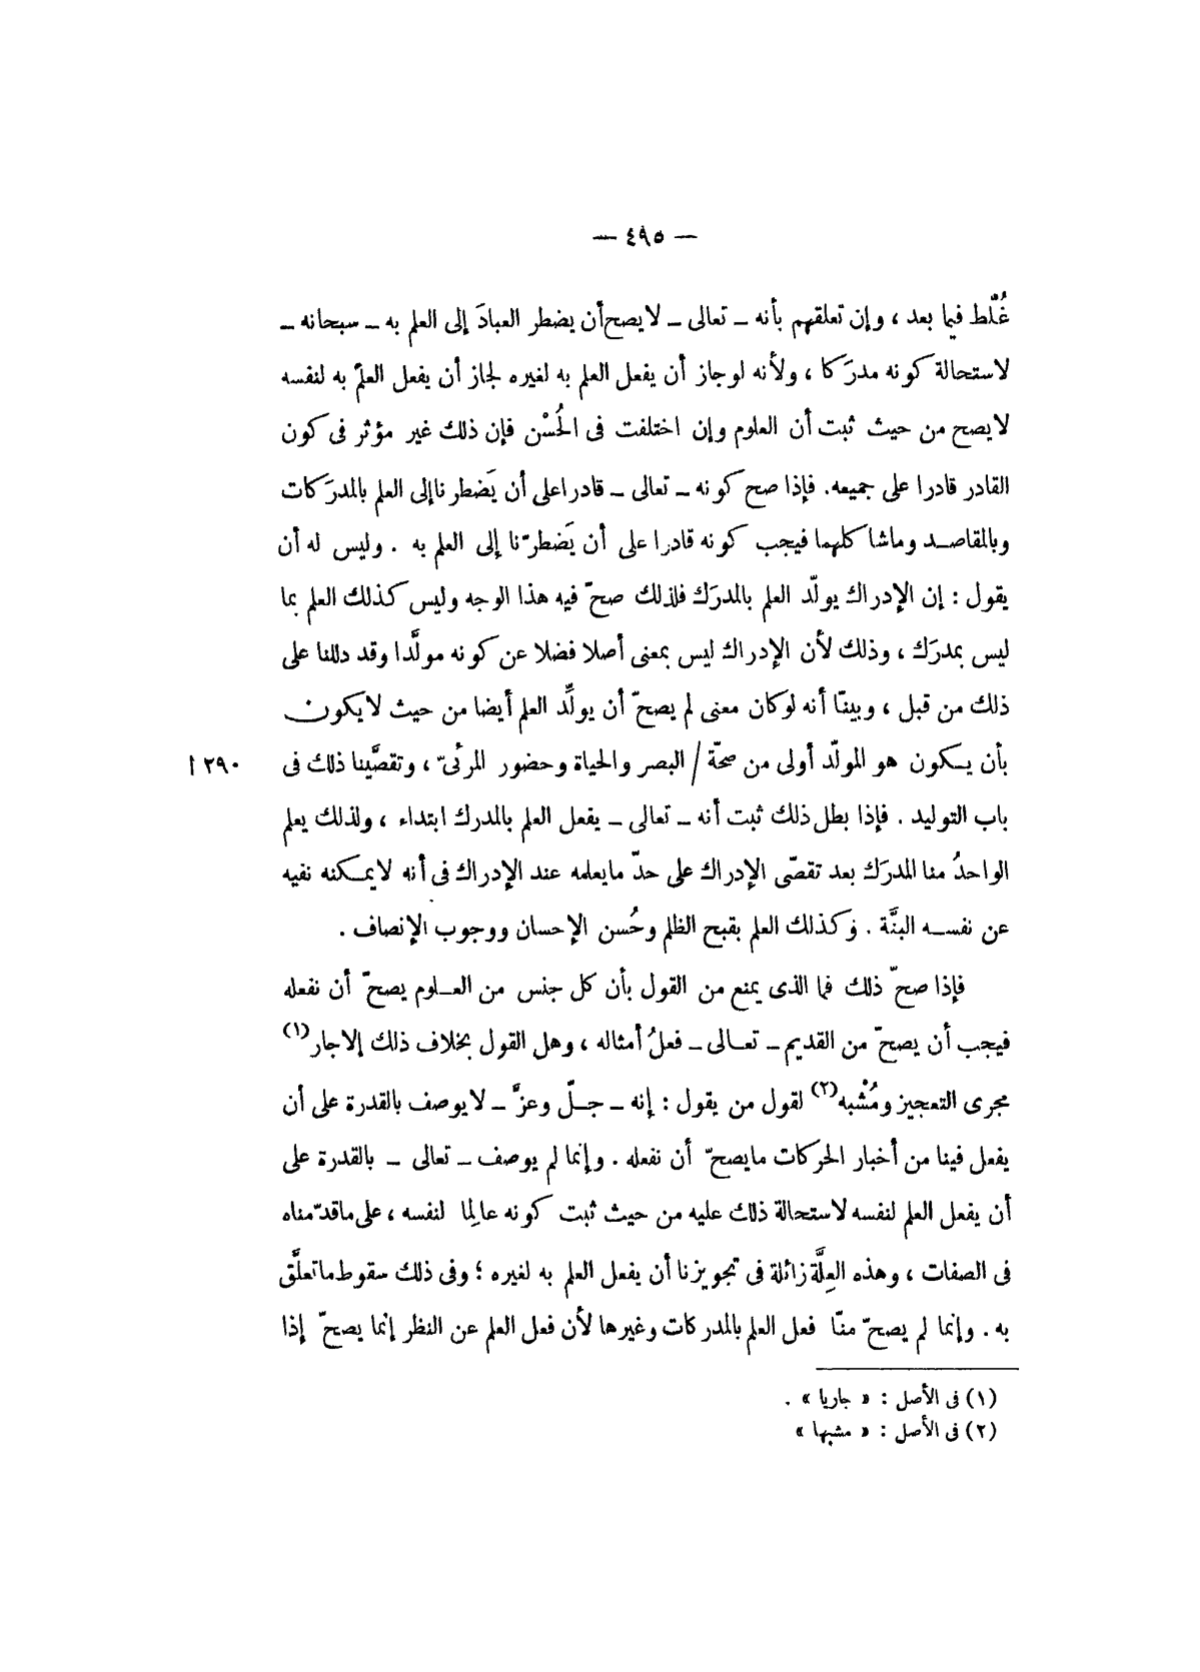 — ٤٩٥ —
غُلّط فيما بعد ، وإن تعلقهم بأنه — تعالى — لايصح أن يضطر العبادَ إلى العلم به — سبحانه —
لاستحالة كونه مدرَكا ، ولأنه لوجاز أن يفعل العلم به لغيره لجاز أن يفعل العلمَ به لنفسه
لايصح من حيث ثبت أن العلوم وإن اختلفت فى الحُسْن فإن ذلك غير مؤثر فى كون
القادر قادرا على جميعه. فإذا صح كونه — تعالى — قادرا على أن يَضطرنا إلى العلم بالمدرَكات
وبالمقاصد وماشاكلهما فيجب كونه قادرا على أن يَضطرّنا إلى العلم به . وليس له أن
يقول : إن الإدراك يولّد العلم بالمدرَك فلذلك صحّ فيه هذا الوجه وليس كذلك العلم بما
ليس بمدرَك ، وذلك لأن الإدراك ليس بمعنى أصلا فضلا عن كونه مولَّدا وقد دللنا على
ذلك من قبل ، وبينّا أنه لوكان معنى لم يصحّ أن يولِّد العلم أيضا من حيث لايكون
بأن يكون هو المولّد أولى من صحّة / البصر والحياة وحضور المرئىّ ، وتقصَّينا ذلك فى ٢٩٠ ا
باب التوليد . فإذا بطل ذلك ثبت أنه — تعالى — يفعل العلم بالمدرك ابتداء ، ولذلك يعلم
الواحدُ منا المدرَك بعد تقصّى الإدراك على حدّ مايعلمه عند الإدراك فى أنه لايمكنه نفيه
عن نفسه البتَّة . وكذلك العلم بقبح الظلم وحُسن الإحسان ووجوب الإنصاف .
فإذا صحّ ذلك فما الذى يمنع من القول بأن كل جنس من العلوم يصحّ أن نفعله
فيجب أن يصحّ من القديم — تعالى — فعلُ أمثاله ، وهل القول بخلاف ذلك إلاجار(١)
مجرى التعجيز ومُشْبه(٢) لقول من يقول : إنه — جلّ وعزَّ — لايوصف بالقدرة على أن
يفعل فينا من أخبار الحركات مايصحّ أن نفعله . وإنما لم يوصف — تعالى — بالقدرة على
أن يفعل العلم لنفسه لاستحالة ذلك عليه من حيث ثبت كونه عالِما لنفسه ، على ماقدّمناه
فى الصفات ، وهذه العِلَّة زائلة فى تجويزنا أن يفعل العلم به لغيره ؛ وفى ذلك سقوط ماتعلَّق
به . وإنما لم يصحّ منّا فعل العلم بالمدركات وغيرها لأن فعل العلم عن النظر إنما يصحّ إذا
(١) فى الأصل : « جاريا » .
(٢) فى الأصل : « مشبها »